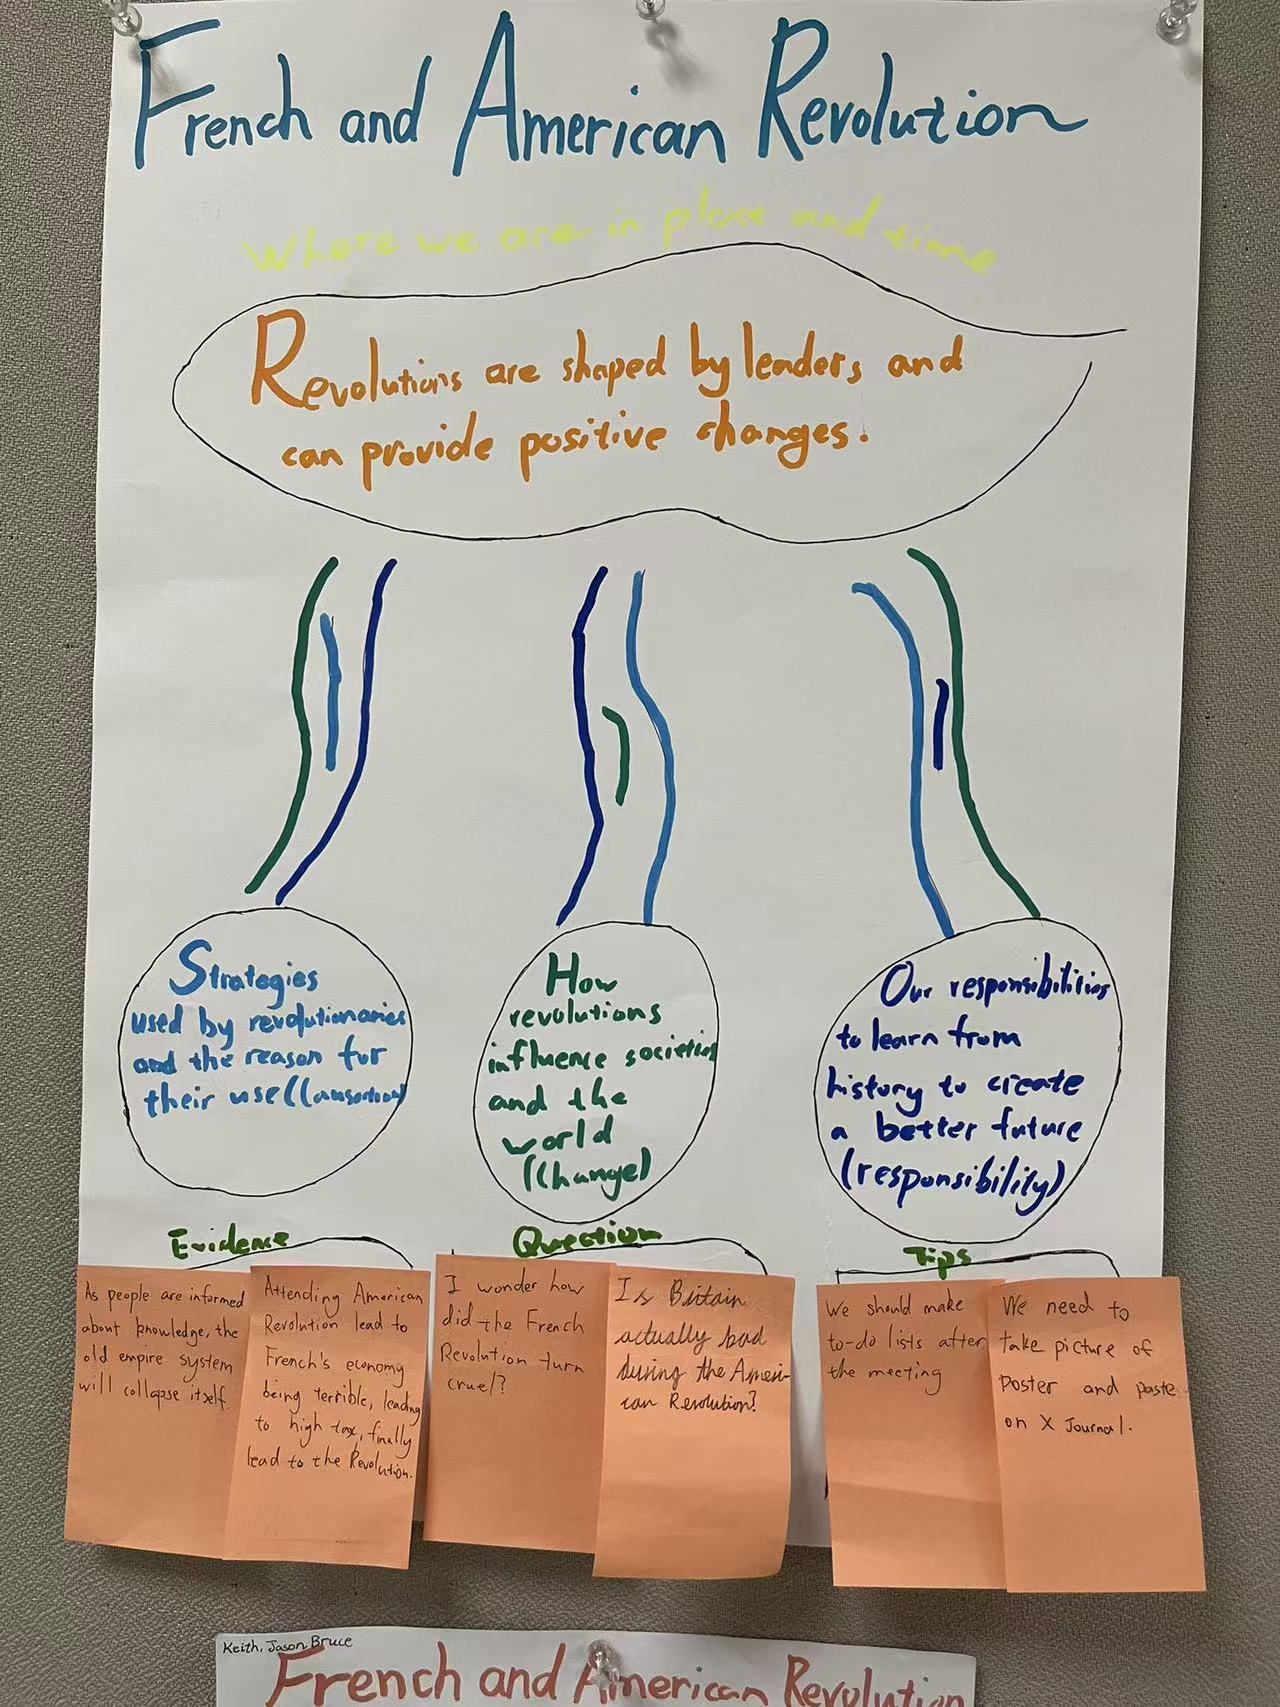 French and American Revolution
Where we are in place and time
Revolutions are shaped by leaders and
can provide positive changes.
Strategies
used by revolutionaries
and the reason for
their use ((causation)
How
revolutions
influence societies
and the
world
(Change)
Our responsibilities
to learn from
history to create
a better future
(responsibility)
Evidence
As people are informed
about knowledge, the
old empire system
will collapse itself.
Attending American
Revolution lead to
French's economy
being terrible, leading
to high tax, finally
lead to the Revolution.
Question
I wonder how
did the French
Revolution turn
cruel?
Is Britain
actually bad
during the Ameri-
can Revolution?
Tips
We should make
to-do lists after
the meeting
We need to
take picture of
poster and paste
on X Journal.
Keith, Jason Bruce
French and American Revolution